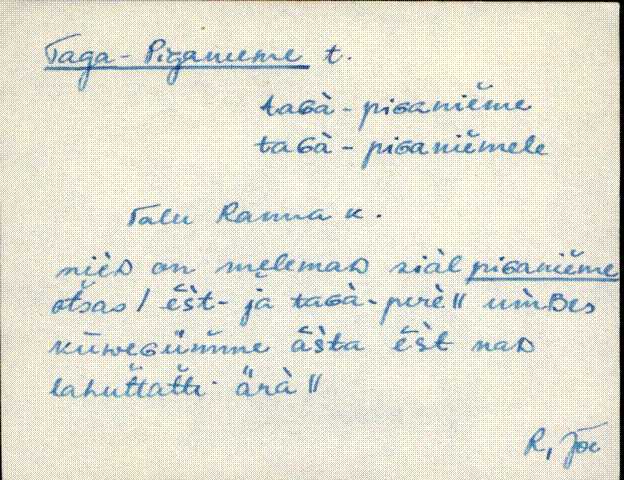 Taga-Piganieme t.
taɢà-piɢaniěme
taɢà-piɢaniěmele
Talu Ranna k.
nièᴅ on melemaᴅ siàl piɢaniěme
otsas / ēs̀t- jà taɢà-perè ‖ um̀ʙes
kūweɢüm̆me āsta ēs̀t naᴅ
lahut̆tat̆ti ärà ‖
R, Jõe